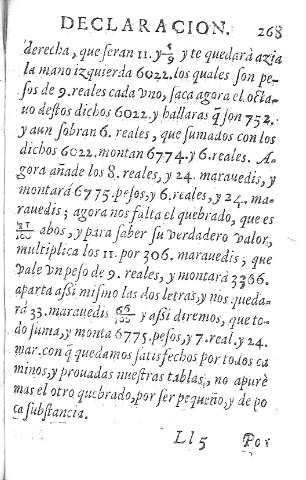 DECLARACION. 268
derecha, que seran 11. y 5/9 y te quedará azia
la mano izquierda 6022. los quales son pe-
sos de 9. reales cada vno, saca agora el octa-
uo destos dichos 6022. y hallaras q̃ son 752.
y aun sobran 6. reales, que sumados con los
dichos 6022. montan 6774. y 6. reales. A-
gora añade los 8. reales, y 24. marauedis, y
montará 6775. pesos, y 6. reales, y 24. ma-
rauedis; agora nos falta el quebrado, que es
11/100 abos, y para saber su verdadero valor,
multiplica los 11. por 306. marauedis, que
vale vn peso de 9. reales, y montará 3366.
aparta assi mismo las dos letras, y nos queda-
rá 33. marauedis 66/100 y assi diremos, que to-
do suma, y monta 6775. pesos, y 7. real. y 24.
mar. con q̃ quedamos satisfechos por todos ca
minos, y prouadas nuestras tablas, no apurè
mas el otro quebrado, por ser pequeño, y de po
ca substancia.
Ll 5 Por